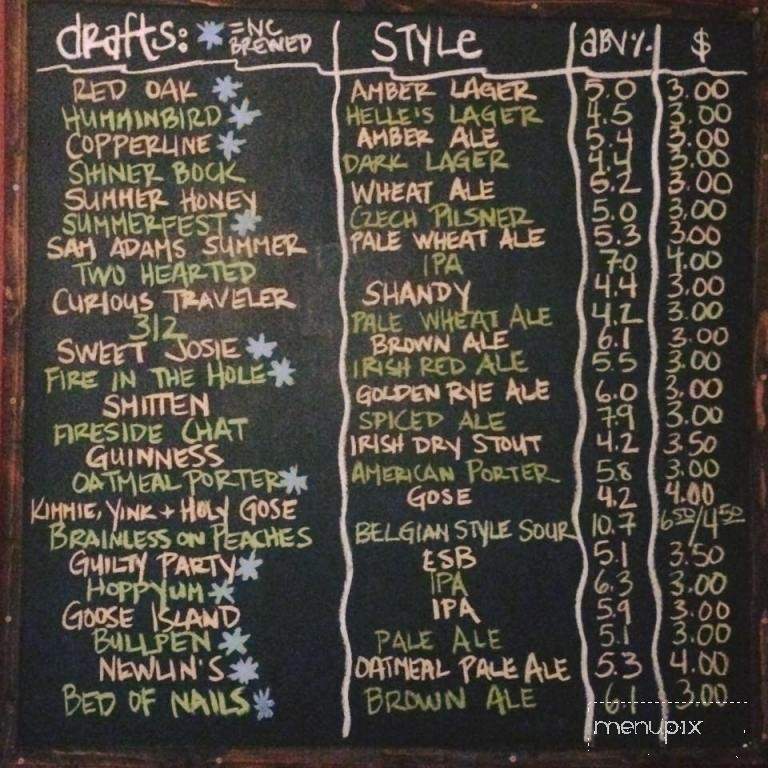 drafts: * = NC BREWED STYLE ABV% $
RED OAK * AMBER LAGER 5.0 3.00
HUMMINBIRD * HELLE'S LAGER 4.5 3.00
COPPERLINE * AMBER ALE 5.4 3.00
SHINER BOCK DARK LAGER 4.4 3.00
SUMMER HONEY WHEAT ALE 5.2 3.00
SUMMERFEST * CZECH PILSNER 5.0 3.00
SAM ADAMS SUMMER PALE WHEAT ALE 5.3 3.00
TWO HEARTED IPA 7.0 4.00
CURIOUS TRAVELER SHANDY 4.4 3.00
312 PALE WHEAT ALE 4.2 3.00
SWEET JOSIE * BROWN ALE 6.1 3.00
FIRE IN THE HOLE * IRISH RED ALE 5.5 3.00
SMITTEN GOLDEN RYE ALE 6.0 3.00
FIRESIDE CHAT SPICED ALE 7.9 3.00
GUINNESS IRISH DRY STOUT 4.2 3.50
OATMEAL PORTER * AMERICAN PORTER 5.8 3.00
KIMMIE, YINK + HOLY GOSE GOSE 4.2 4.00
BRAINLESS ON PEACHES BELGIAN STYLE SOUR 10.7 6 50/4 50
GUILTY PARTY * ESB 5.1 3.50
HOPPYUM * IPA 6.3 3.00
GOOSE ISLAND IPA 5.9 3.00
BULLPEN * PALE ALE 5.1 3.00
NEWLIN'S * OATMEAL PALE ALE 5.3 4.00
BED OF NAILS * BROWN ALE 6.1 3.00
menupix